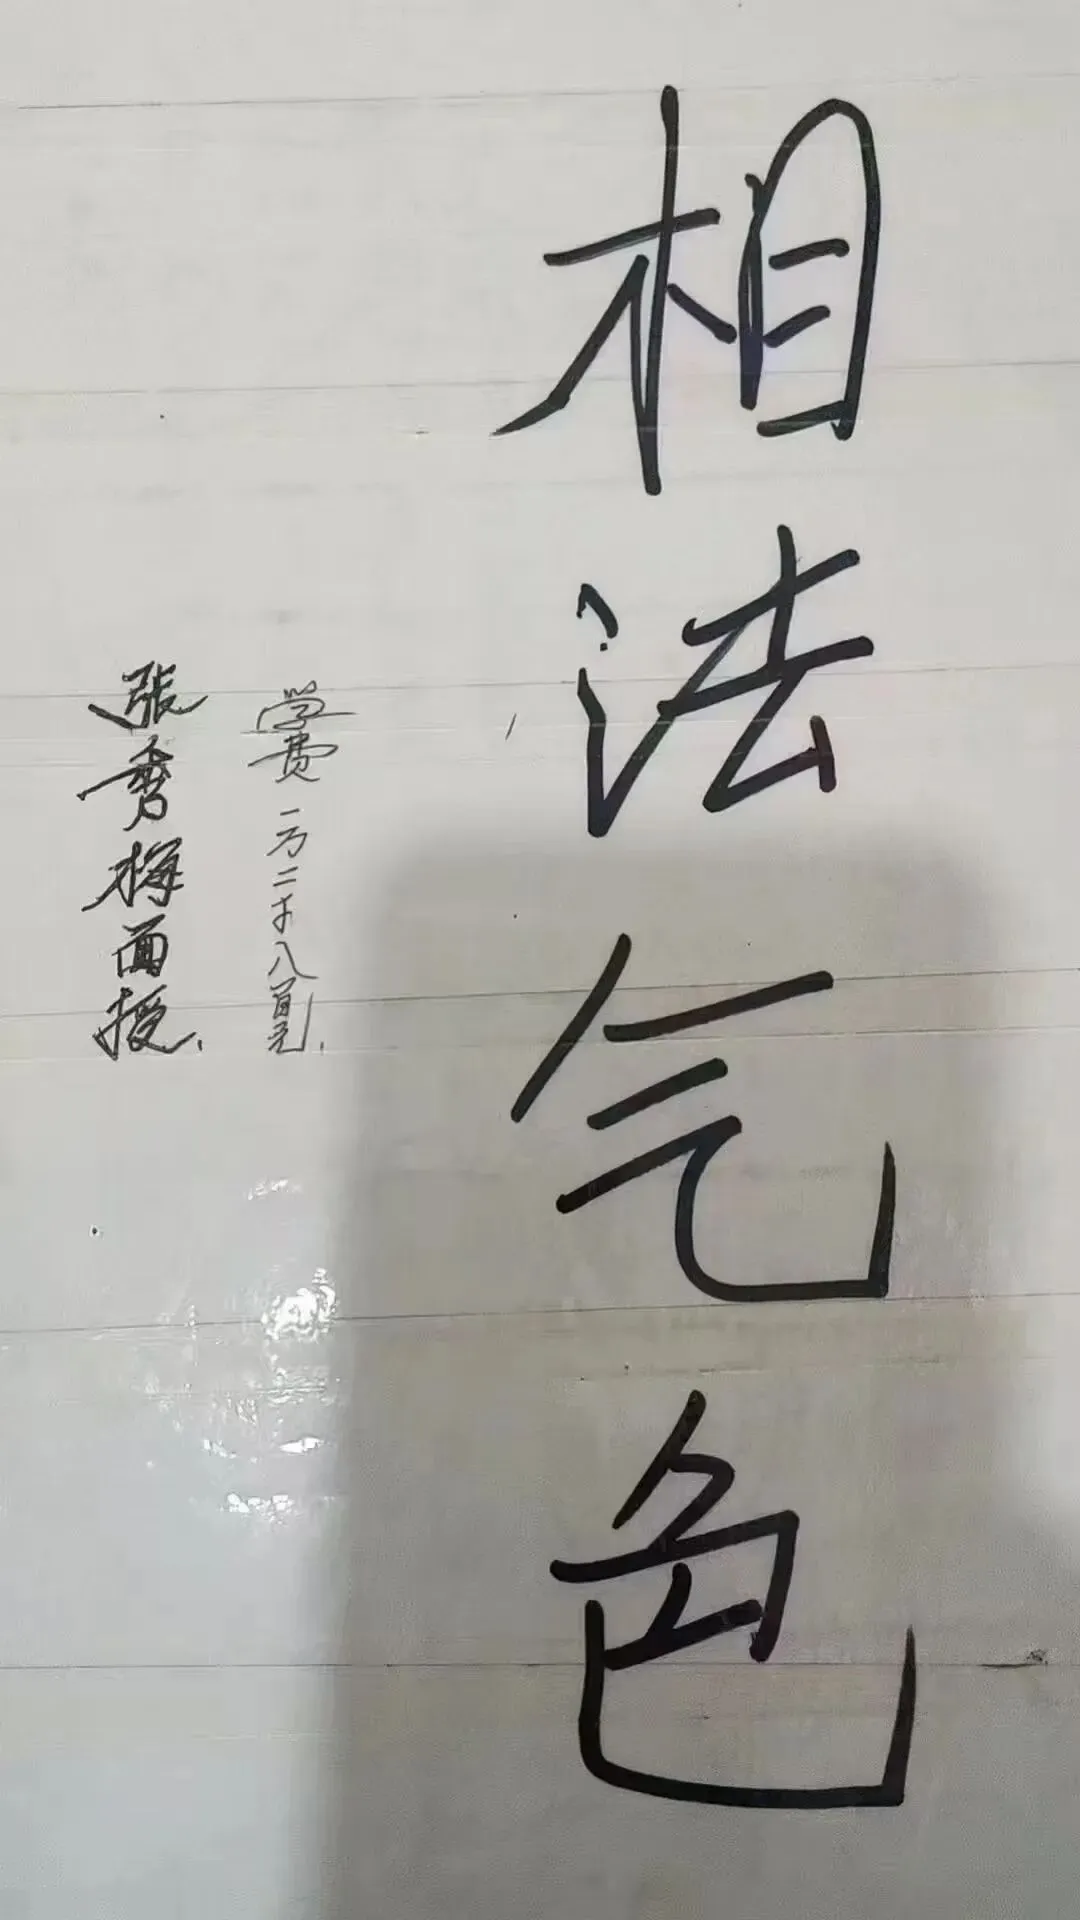 相法气色
学费一万二千八百元.
張秀梅面授.